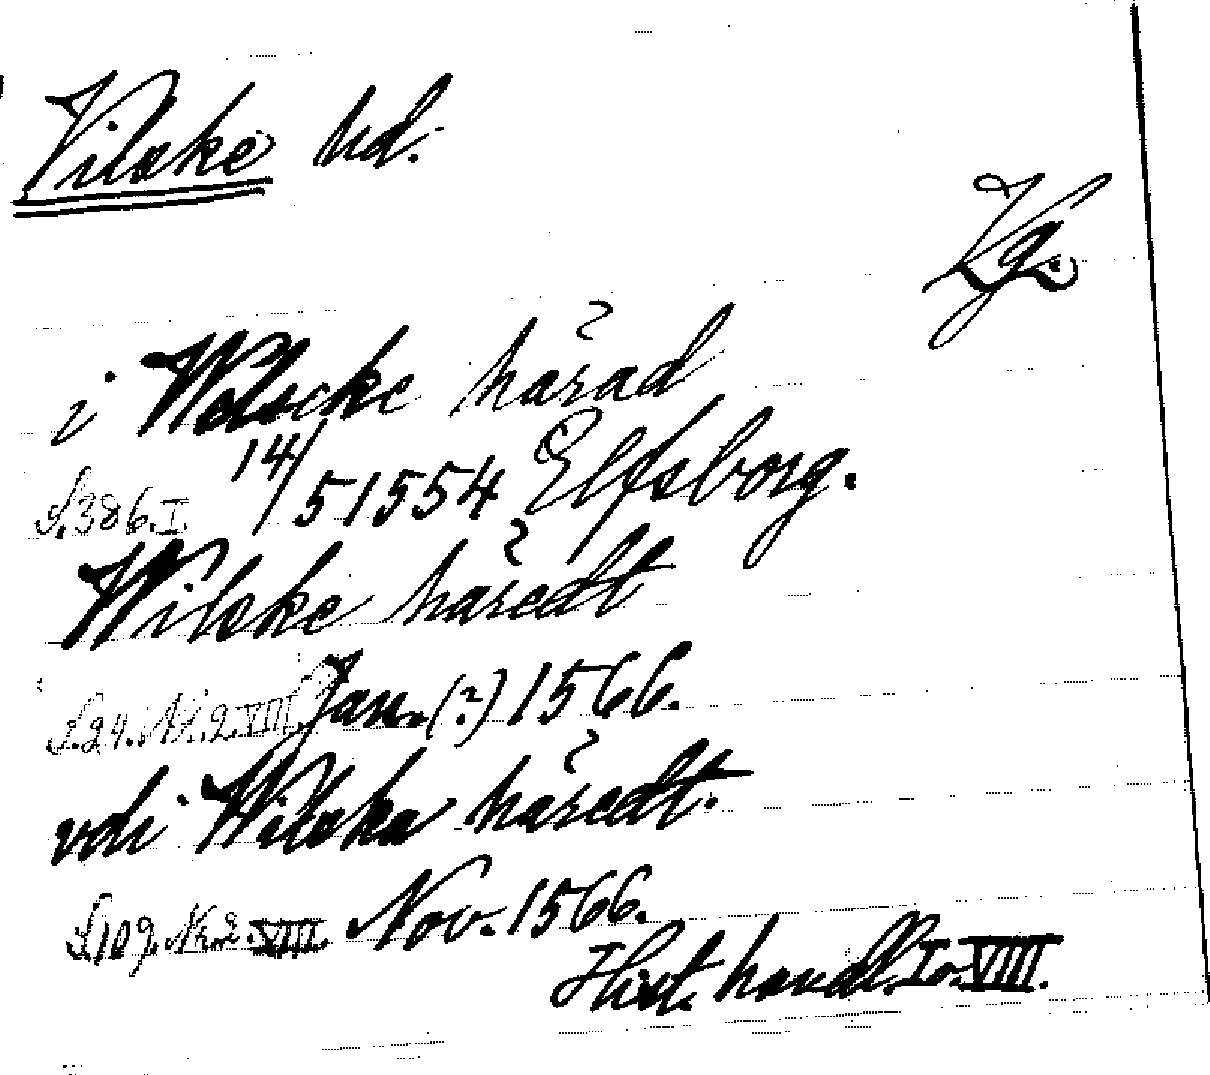 Vilske hd.
Vg.
i Welscke härad
S.386.I. 14/5 1554 Elfsborg.
Wilske häredt
S.24. Nr.2.VIII. Jan.(?) 1566.
vdi Wilska häredt.
S.109. Nr.2.VIII. Nov. 1566.
Hist. handl. I o. VIII.